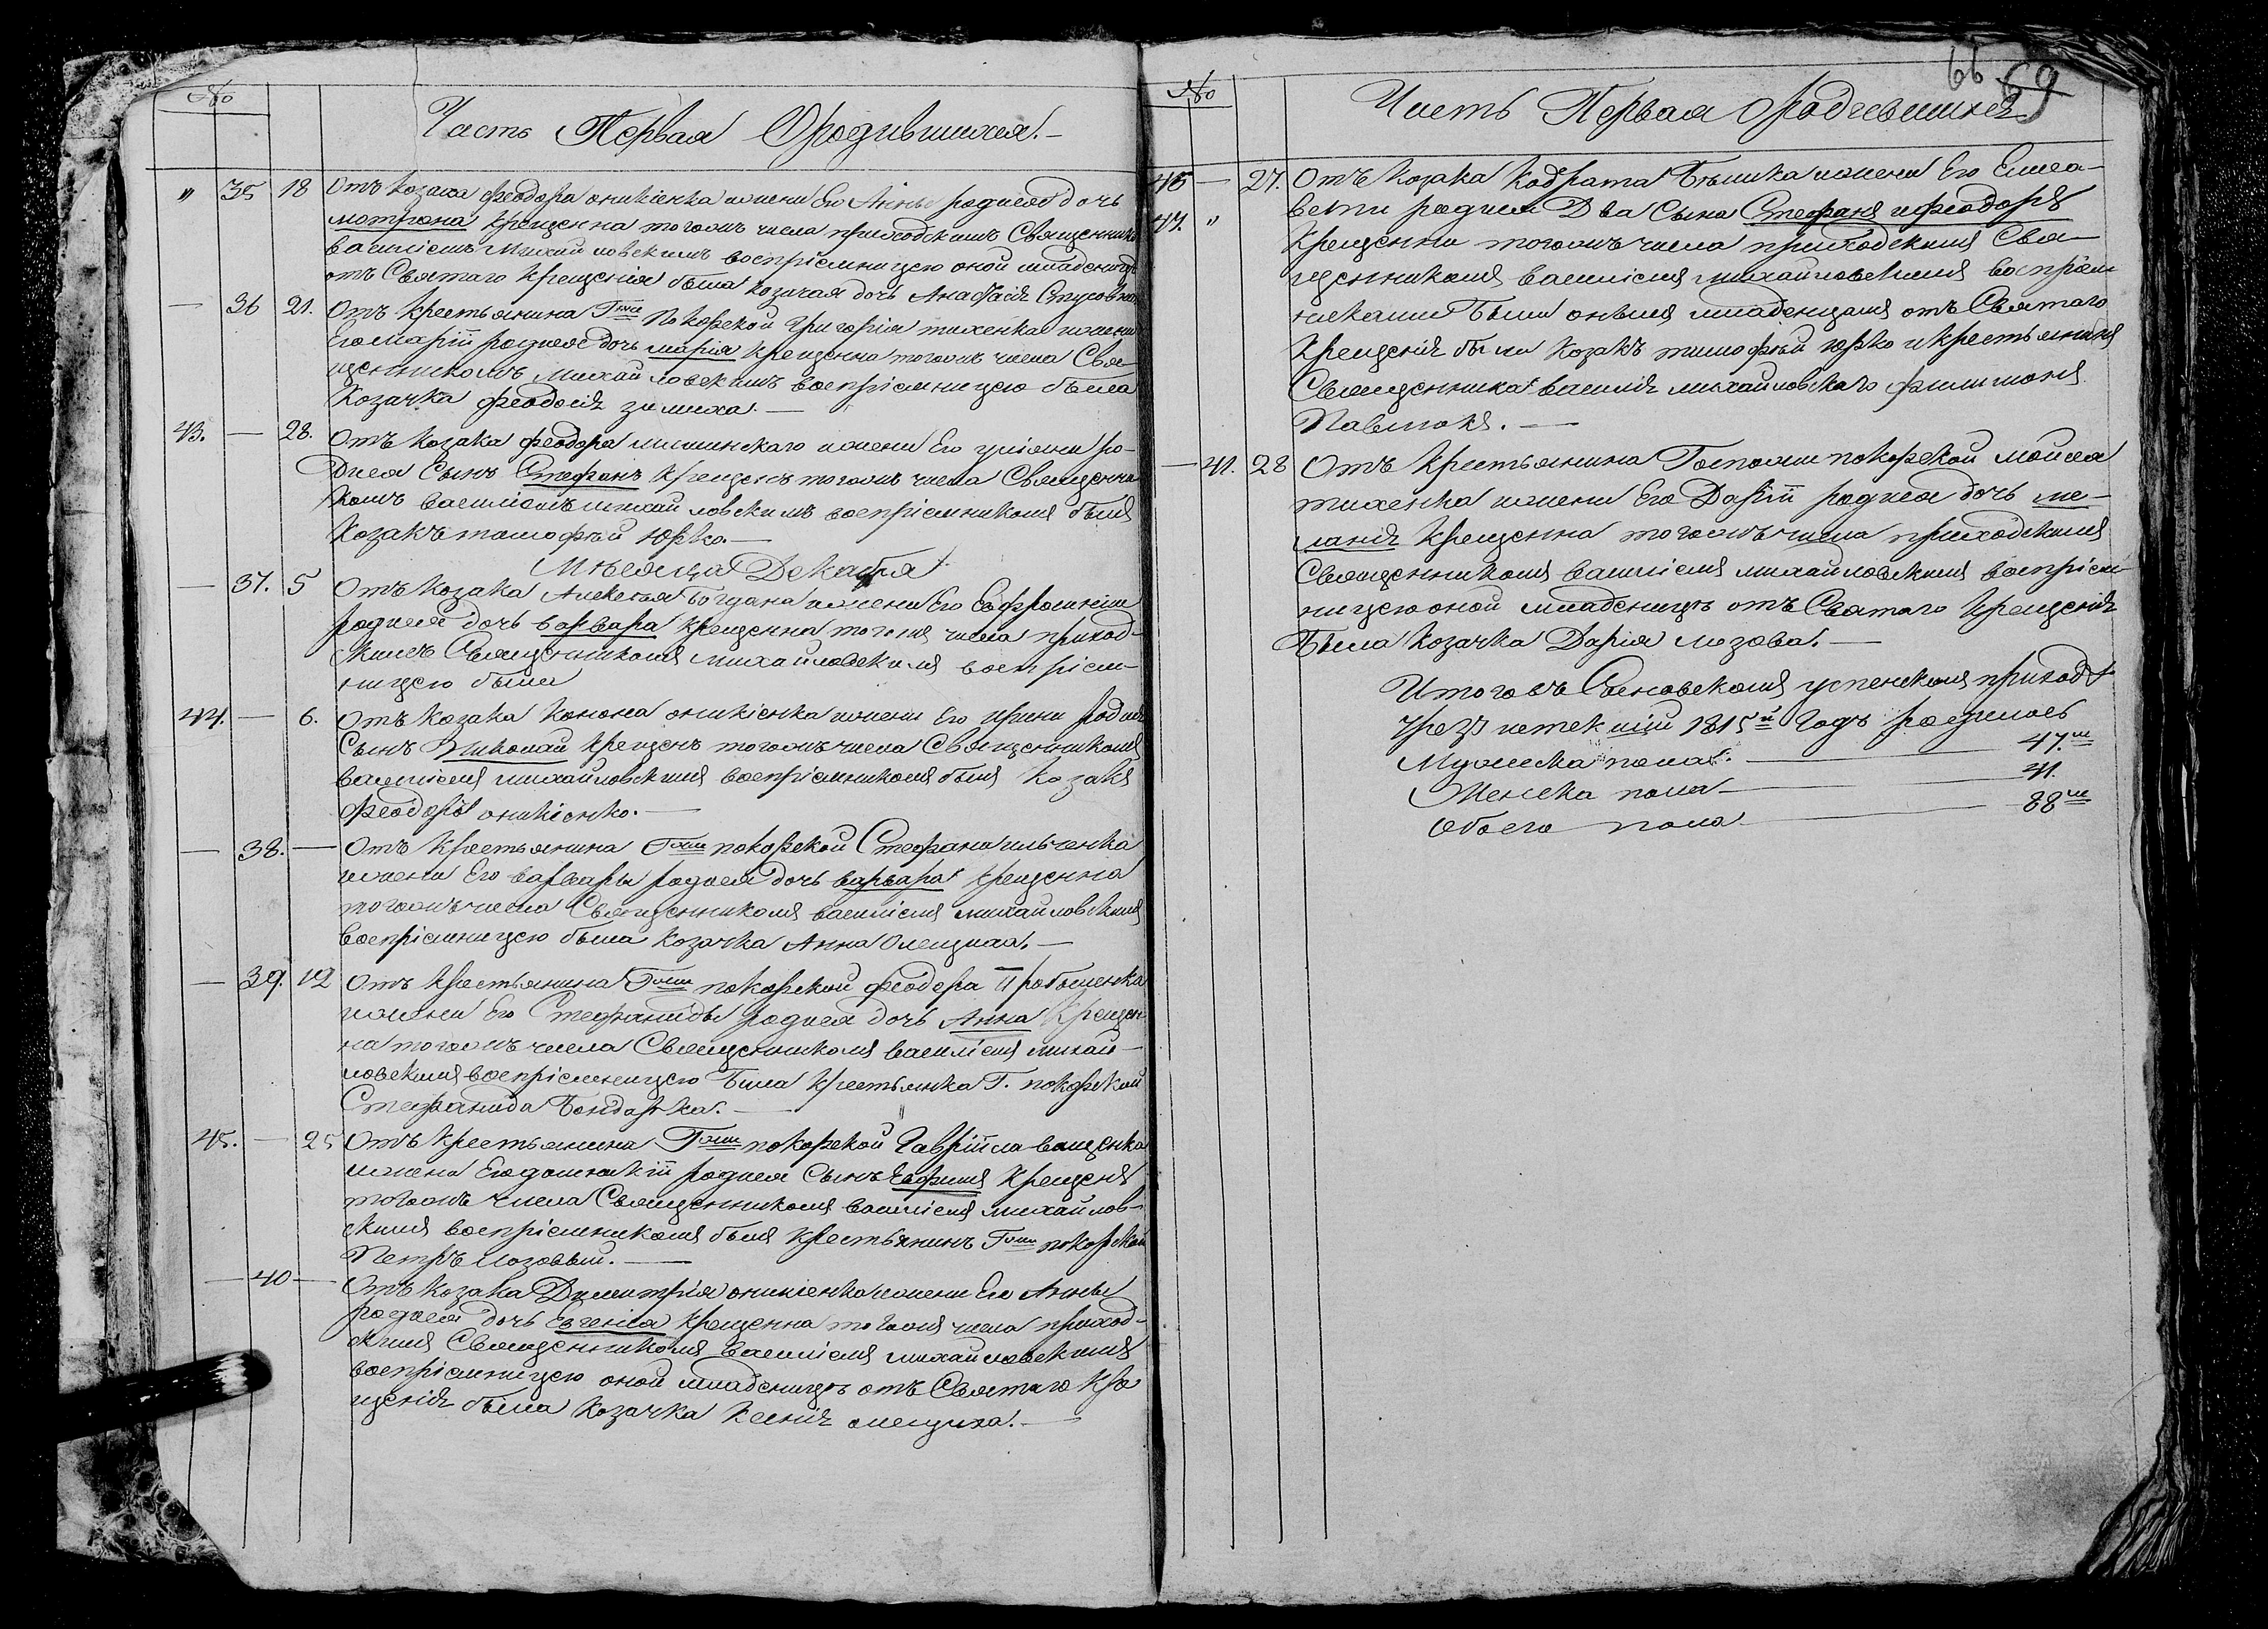 №
Часть Первая Ородившихся. —
" 35 18 Отъ козака феодора оникіенка жени Его Анны родися дочь
мотрона крещенна тогожъ числа приходскимъ Священникомъ
василіемъ Михайловскимъ воспріемницею оной младеницѣ
отъ Святаго крещенія была козачая дочь Анастасія
— 36 21. Отъ крестьянина Гпжи Покорской григорія тихенка жени
Его маріи родися дочь марія крещенна тогожъ числа Свя-
щенникомъ Михайловскимъ воспріемницею была
Козачка феодосія зимиха. —
43. — 28. Отъ козака феодора жени Его уліяни ро-
дися Сынъ Стефанъ крещенъ тогожъ числа Священни
комъ василіемъ михайловскимъ воспріемникомъ былъ
Козакъ тимофѣй Юрко. —
Мѣсяца Декабря
— 37. 5 Отъ козака Алексѣя богдана жени Его Евфросиніи
родися дочь варвара крещенна тогожъ числа приход-
скимъ Священникомъ михайловскимъ воспріем-
ницею была
44. — 6. Отъ козака конона оникіенка жени Его ирини родися
Сынъ Николай крещенъ тогожъ числа Священникомъ
василіемъ михайловскимъ воспріемникомъ былъ козакъ
феодоръ оникіенко. —
— 38. — Отъ крестьянина Гпжи покорской Стефана ильченка
жени Его варвары родися дочь варвара крещенна
тогожъ числа Священникомъ василіемъ михайловскимъ
воспріемницею была козачка Анна Олещиха. —
— 39. 12 Отъ крестьянина Гпжи покорской феодора
жени Его Стефаниды родися дочь Анна крещен-
на тогожъ числа Священникомъ василіемъ михай-
ловскимъ воспріемницею была крестьянка Г. покорской
Стефанида бондарка. —
45. — 25 Отъ крестьянина Гпжи покорской Гавріила ващенка
жени Его домникіи родися Сынъ Евфимъ крещенъ
тогожъ числа Священникомъ василіемъ михайлов-
скимъ воспріемникомъ былъ крестьянинъ Гпжи покорской
Петръ Лозовый. —
— 40 — Отъ козака Димитрія оникіенка жени Его Анны
родися дочь Евгенія крещенна тогожъ числа приход-
скимъ Священникомъ василіемъ михайловскимъ
воспріемницею оной младеницѣ отъ Святаго кре
щенія была козачка ксенія олещиха. —
66 69
№
Часть Первая ородившихся
46 — 27. Отъ козака кодрата жени Его Елиса-
47. " вети родися Два Сына Стефанъ ифеодоръ
крещенни тогожъ числа приходскимъ Свя-
щенникомъ василіемъ михайловскимъ воспріем
никами были онымъ младенцамъ отъ Святаго
крещенія были козакъ тимофѣй юрко и крестьянинъ
Священника василія михайловскаго филимонъ
Павлюкъ. —
— 41. 28 Отъ крестьянина Госпожи покорской мойсея
тихенка жени Его Даріи родися дочь ме-
ланія крещенна тогожъ числа приходскимъ
Священникомъ василіемъ михайловскимъ воспріем-
ницею оной младеницѣ отъ Святаго крещенія
была козачка Дарія лозова. —
Итого въ успенскомъ приходѣ
Чрезъ истекшій 1815й Годъ родилось
Мужеска пола. — 47.
Женска пола — 41.
Обоего пола — 88